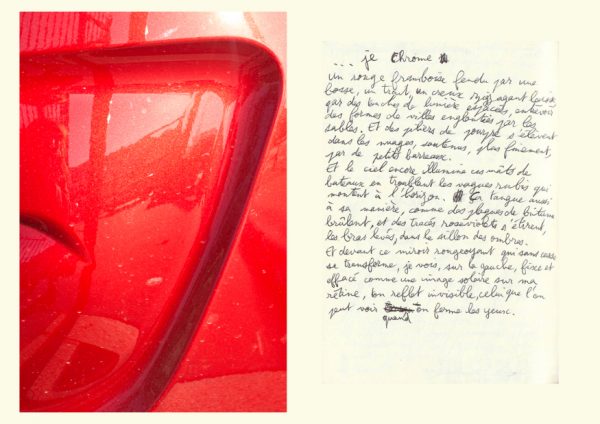 ... je Chrome
Un rouge framboise fendu par une
bosse, un trait, un creux zigzagant laisse
par des touches de lumière espacées, entrevoir
des formes de villes englouties par les
sables. Et des piliers de pourpre s'élèvent
dans les nuages, soutenus, plus finement,
par de petits barreaux.
Et le ciel encore illumine ces mâts de
bateaux en troublant les vagues rubis qui
montent à l'horizon. tangue aussi
à sa manière, comme des plaques de bitume
brûlent, et des tracés roseviolets s'étirent,
les bras levés, dans le sillon des ombres.
Et devant ce miroir rougeoyant qui sans cesse
se transforme, je vois, sur la gauche, fixe et
effacé comme une image solaire sur ma
rétine, ton reflet invisible, celui que l'on
peut voir on ferme les yeux.
quand